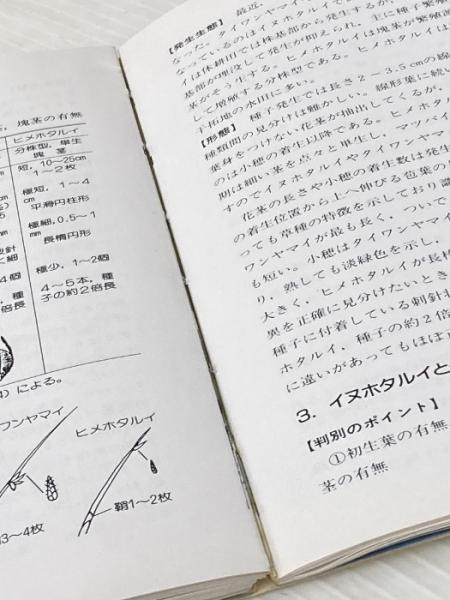 塊茎の有無
ヒメホタルイ
分株型，単生
塊茎
短，10〜25cm
1〜2枚
極短，1〜4
cm
平滑円柱形
極細，0.5〜1
mm
長楕円形
極少，1〜2個
4〜5本，種
子の約2倍長
による。
ワンヤマイ
ヒメホタルイ
3〜4枚
鞘1〜2枚
最近，
【発生生態】
なった。タイワンヤマイ，
なっているのはイヌホタルイで
イは休耕田では株基部から発生するが，
基部が埋没して発生が抑えられ，主に種子繁殖
茎がそう生する。ヒメホタルイは塊茎が繁殖源
して増殖する分株型である。ヒメホタルイは
干拓地の水田に多い。
【形態】
種子発生では長さ2〜3.5cmの線
種類間の見分けは難かしい。線形葉に続い
葉身をつけない花茎が抽出してくるが，
のは小穂の着生以降である。ヒメホタ
期は細い茎を点々と単生し，マツバイ
すのでイヌホタルイやタイワンヤマ
花茎の長さや小穂の着生数は発生
の着生位置から上へ伸びる苞葉の
っても草種の特徴を示しており識
ワンヤマイが最も長く，ついで
も短い。小穂はタイワンヤマイ
り，熟しても淡緑色を示し，
大きく，ヒメホタルイが長楕
異を正確に見分けたいとき
種子に付着している刺針状
ホタルイ，種子の約2倍
に違いがあってもほぼ
3．イヌホタルイと
【判別のポイント】
①初生葉の有無
茎の有無